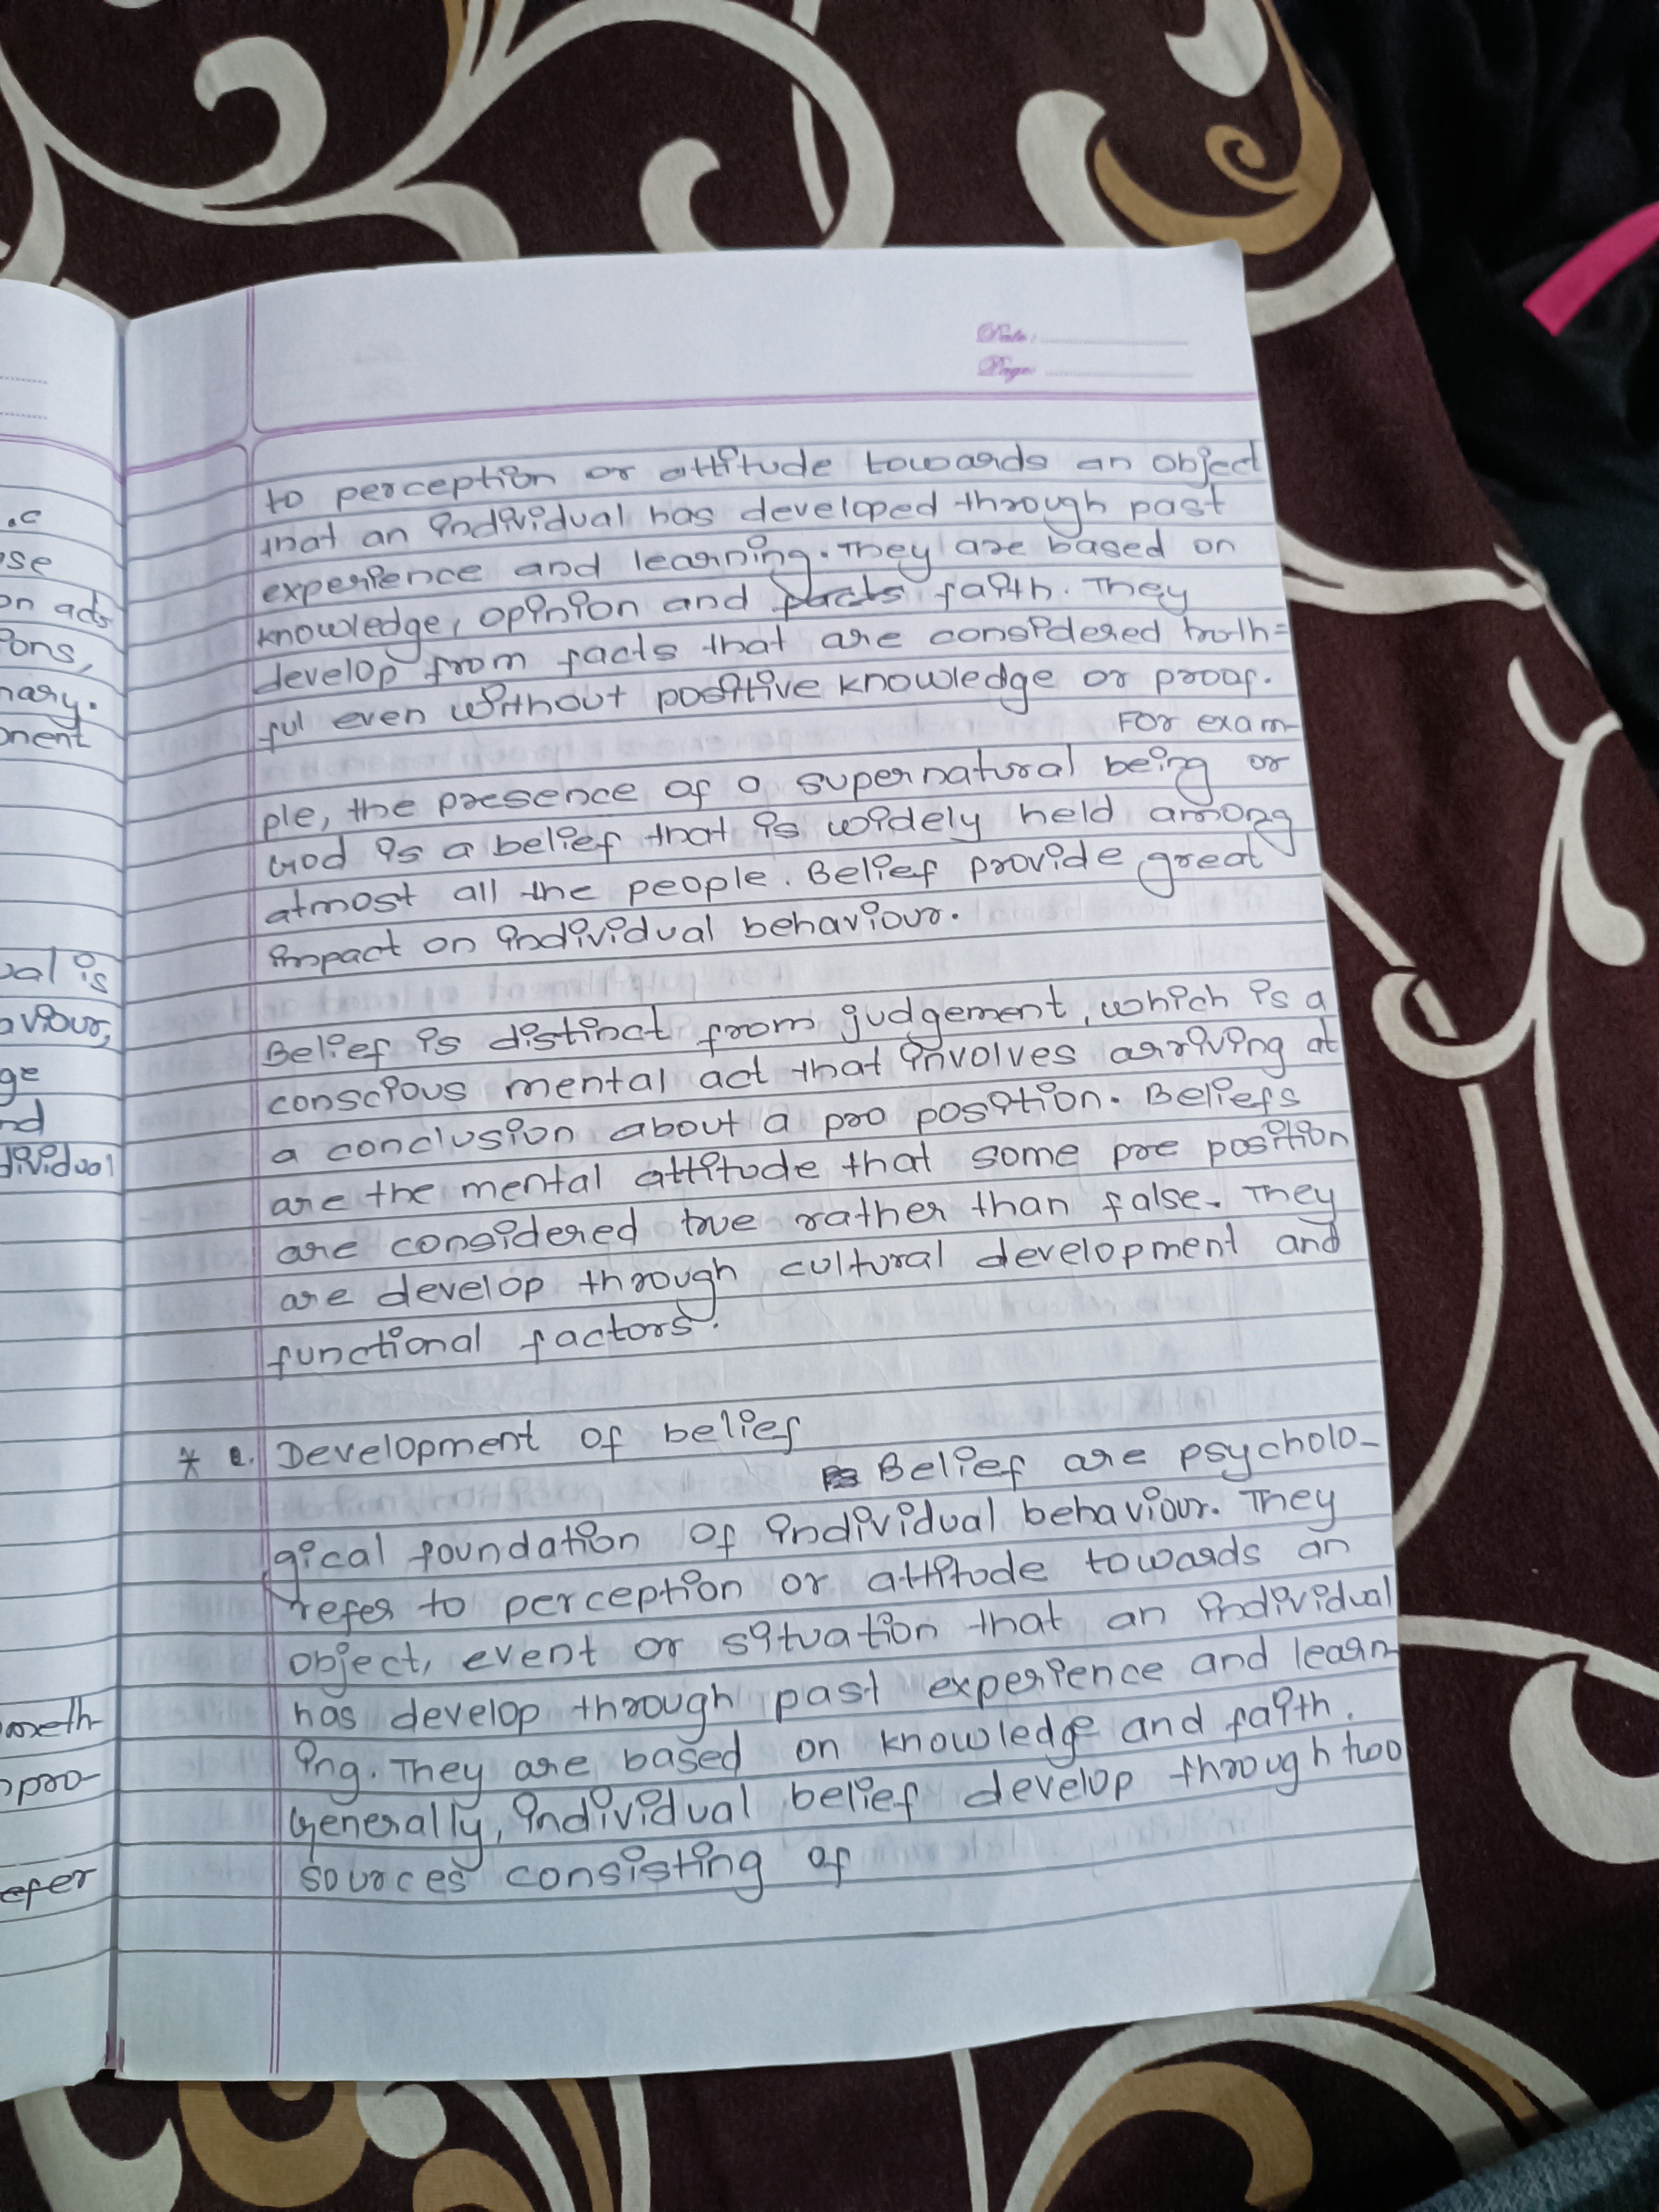 .c
se
on acts
ions,
nary.
onent
ual is
aviour,
ge
nd
dividual
oxeth-
pro-
efer
Date:
Page:
to perception or attitude towards an object
that an individual has developed through past
experience and learning. They are based on
knowledge, opinion and facts faith. They
develop from facts that are considered truth=
ful even without positive knowledge or proof.
For exam-
ple, the presence of a supernatural being or
God is a belief that is widely held among
atmost all the people. Belief provide great
impact on individual behaviour.
Belief is distinct from judgement, which is a
conscious mental act that involves arriving at
a conclusion about a pro position. Beliefs
are the mental attitude that some pre position
are considered true rather than false. They
are develop through cultural development and
functional factors.
* 2. Development of belief
Belief are psycholo-
gical foundation of individual behaviour. They
refer to perception or attitude towards an
object, event or situation that an individual
has develop through past experience and learn-
ing. They are based on knowledge and faith.
Generally, individual belief develop through two
sources consisting of